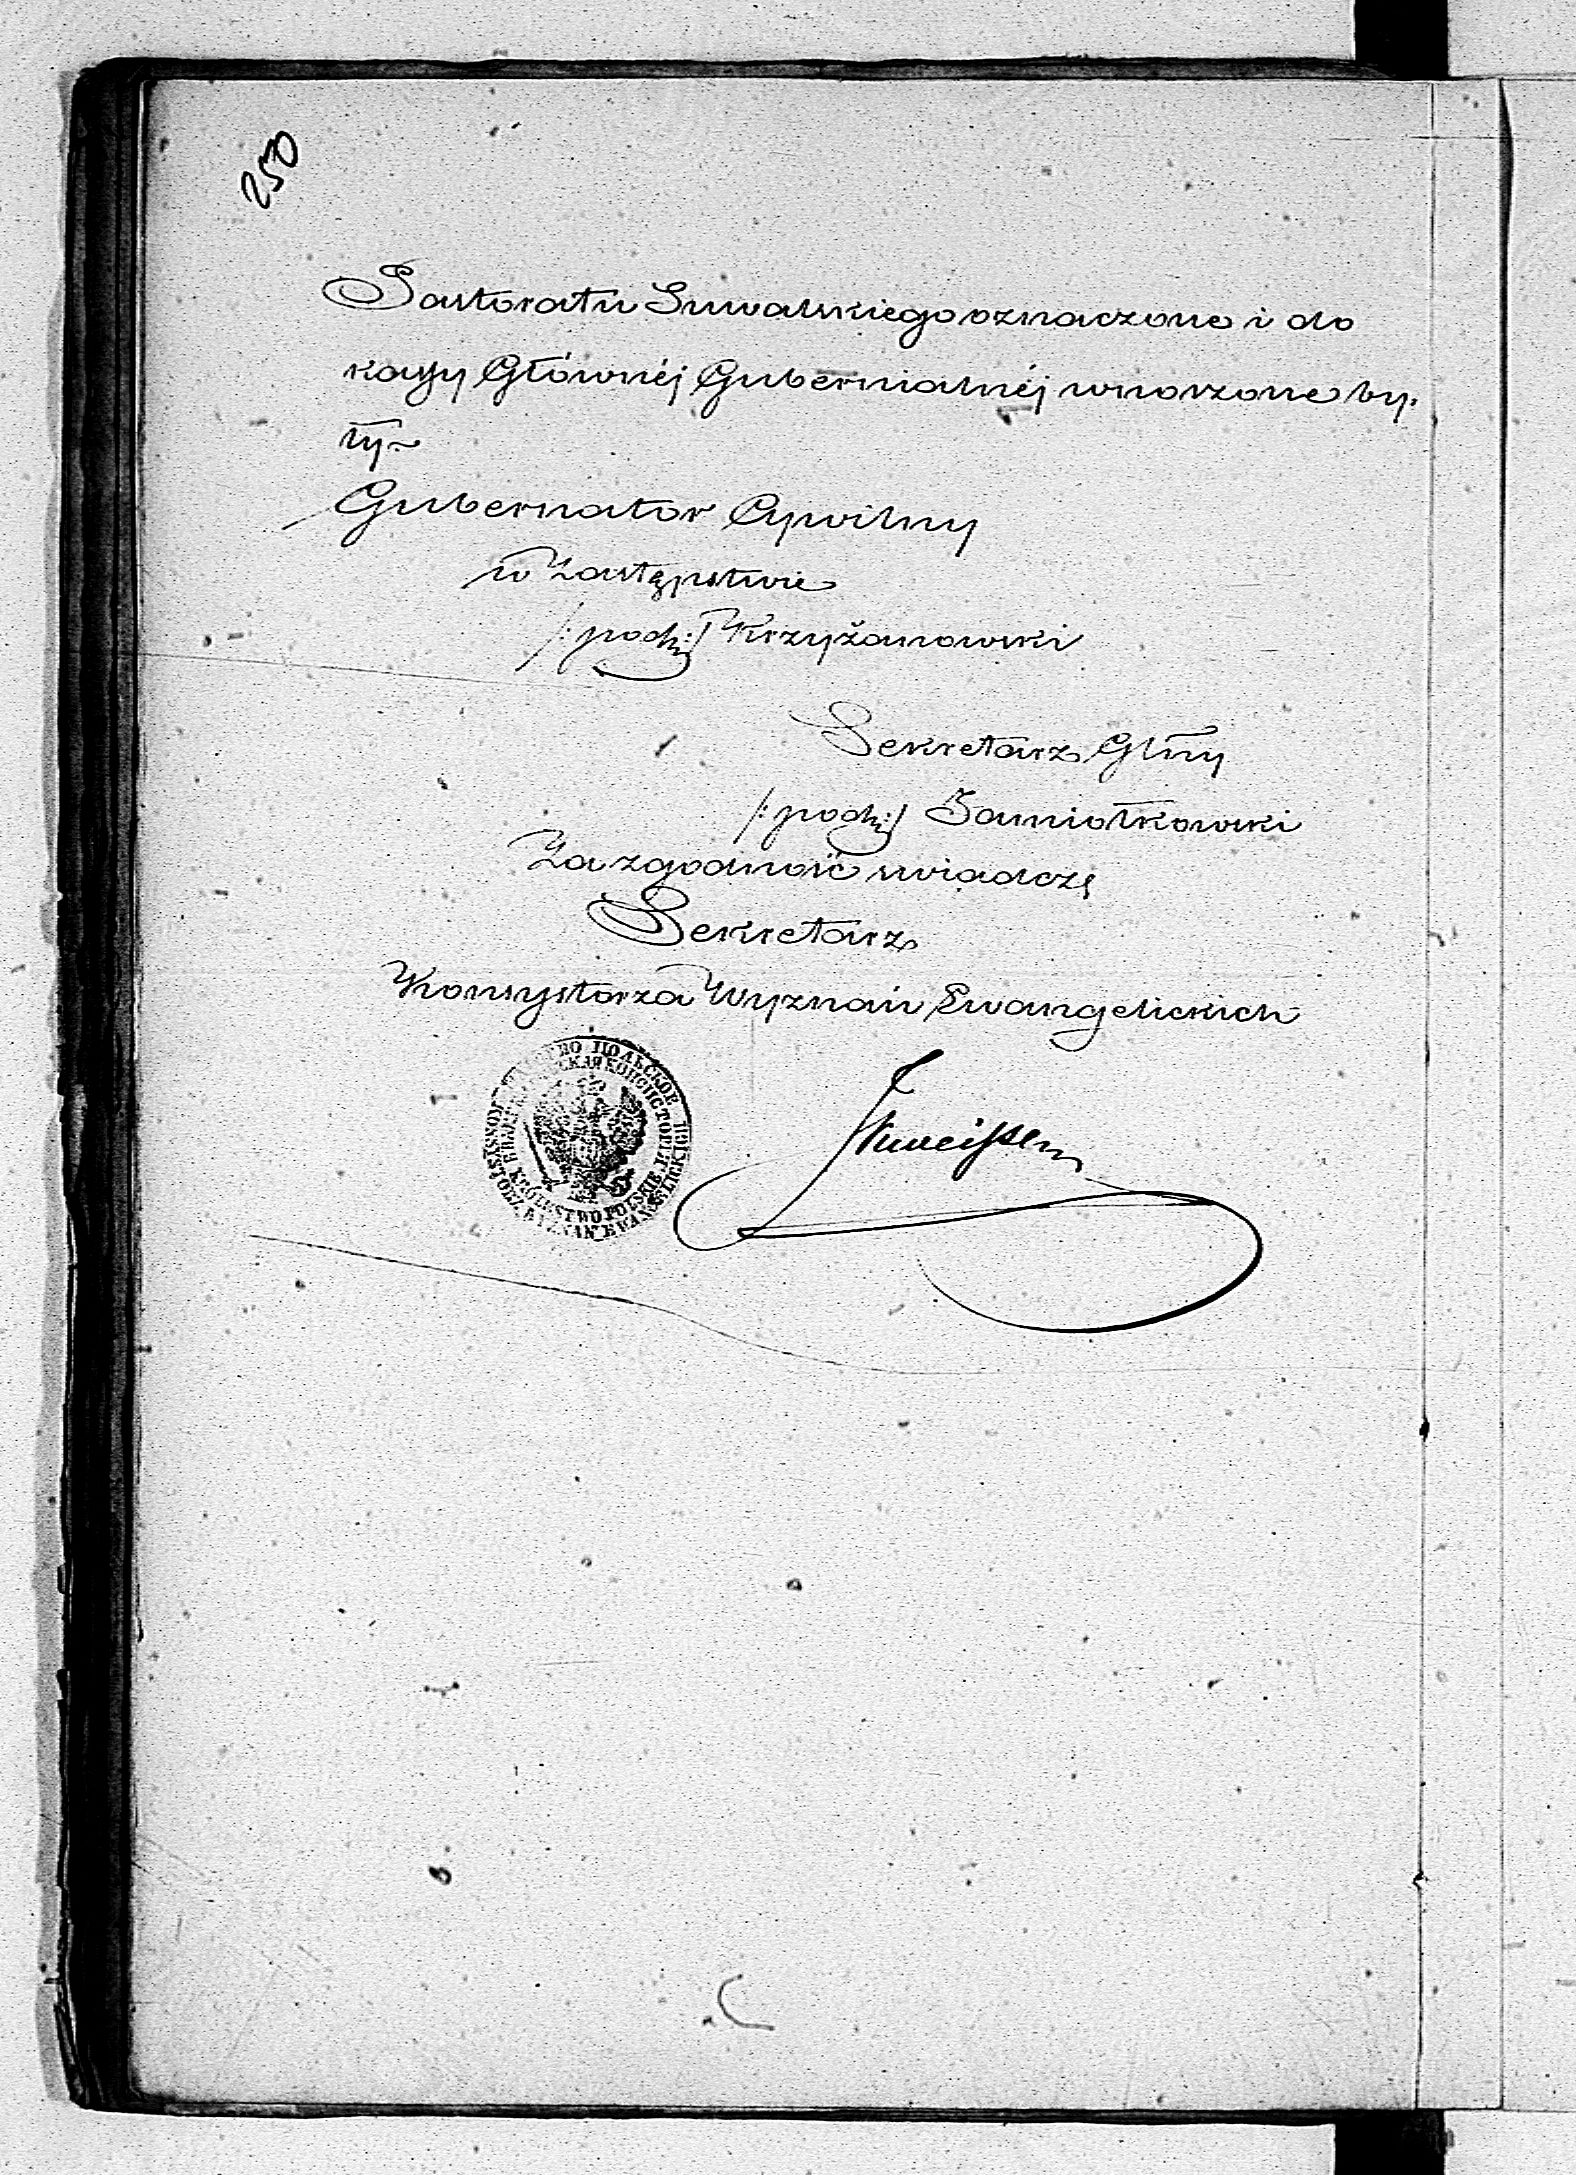 250
Pastoratu Suwalskiego oznaczone i do
kassy Głównéj Gubernialnéj wnoszone by-
ły
Gubernator Cywilny
w Zastępstwie
/:podp:/ Krzyżanowski
Sekretarz Głny
/:podp:/ Samiotkowski
Za zgodność swiadczę
Sekretarz
Konsystorza Wyznań Ewangelickich
ПОЛЬСКОЕ
КРÓLESTWO POLSKIE